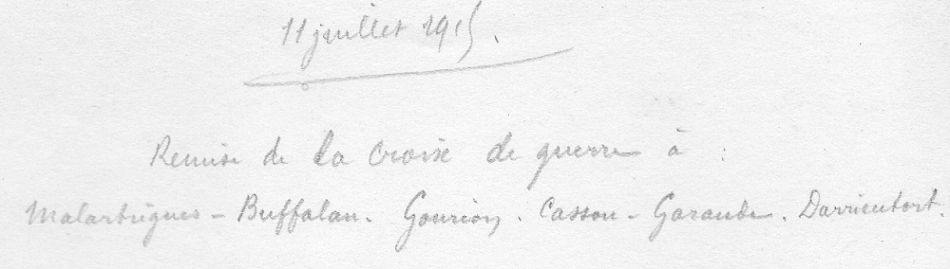 11 juillet 1915.
Remise de la Croix de guerre à :
Malartrigues - Buffalan. Gourion. Casson - Garaude. Darrieutort.